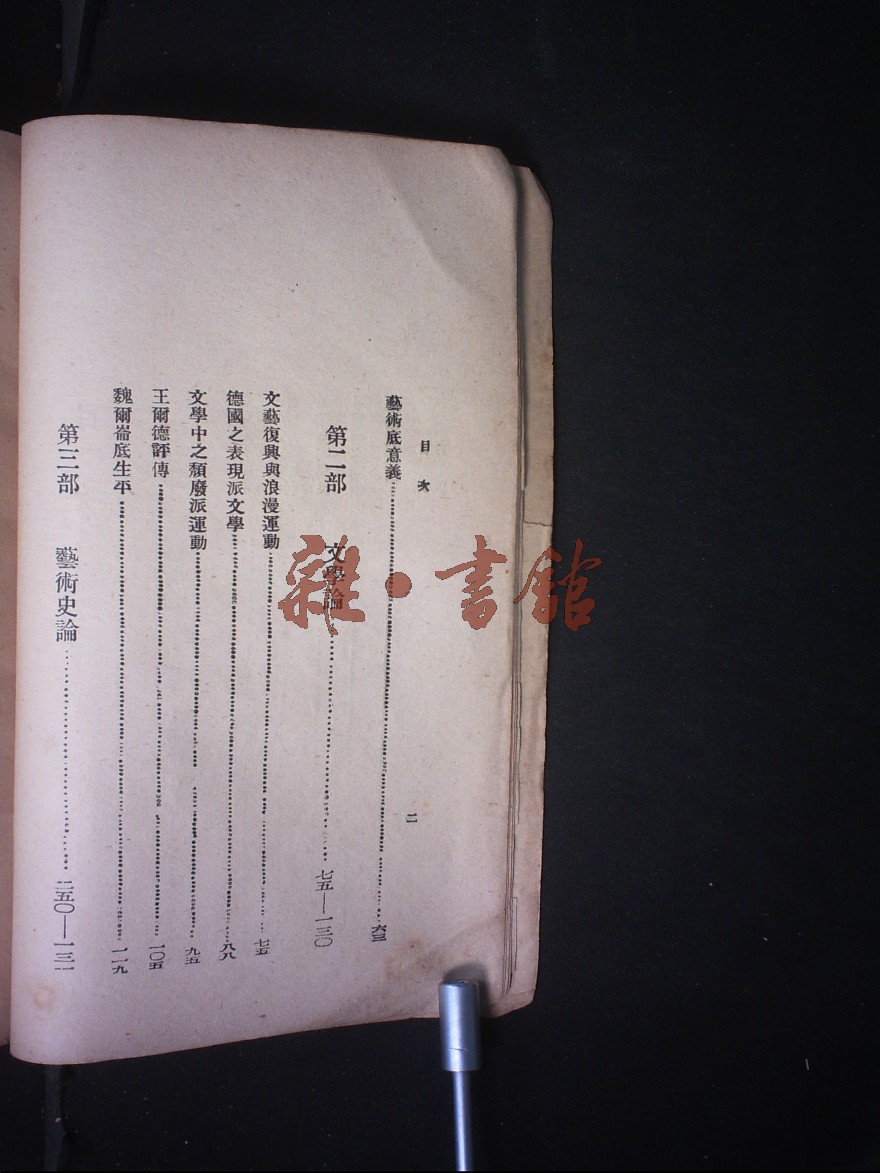 目次
二
藝術底意義 六三
第二部 文學論 七五—一三〇
文藝復興與浪漫運動 七五
德國之表現派文學 八八
文學中之頹廢派運動 九五
王爾德評傳 一〇五
魏爾崙底生平 一一九
第三部 藝術史論 二五〇—一三一
雜·書館